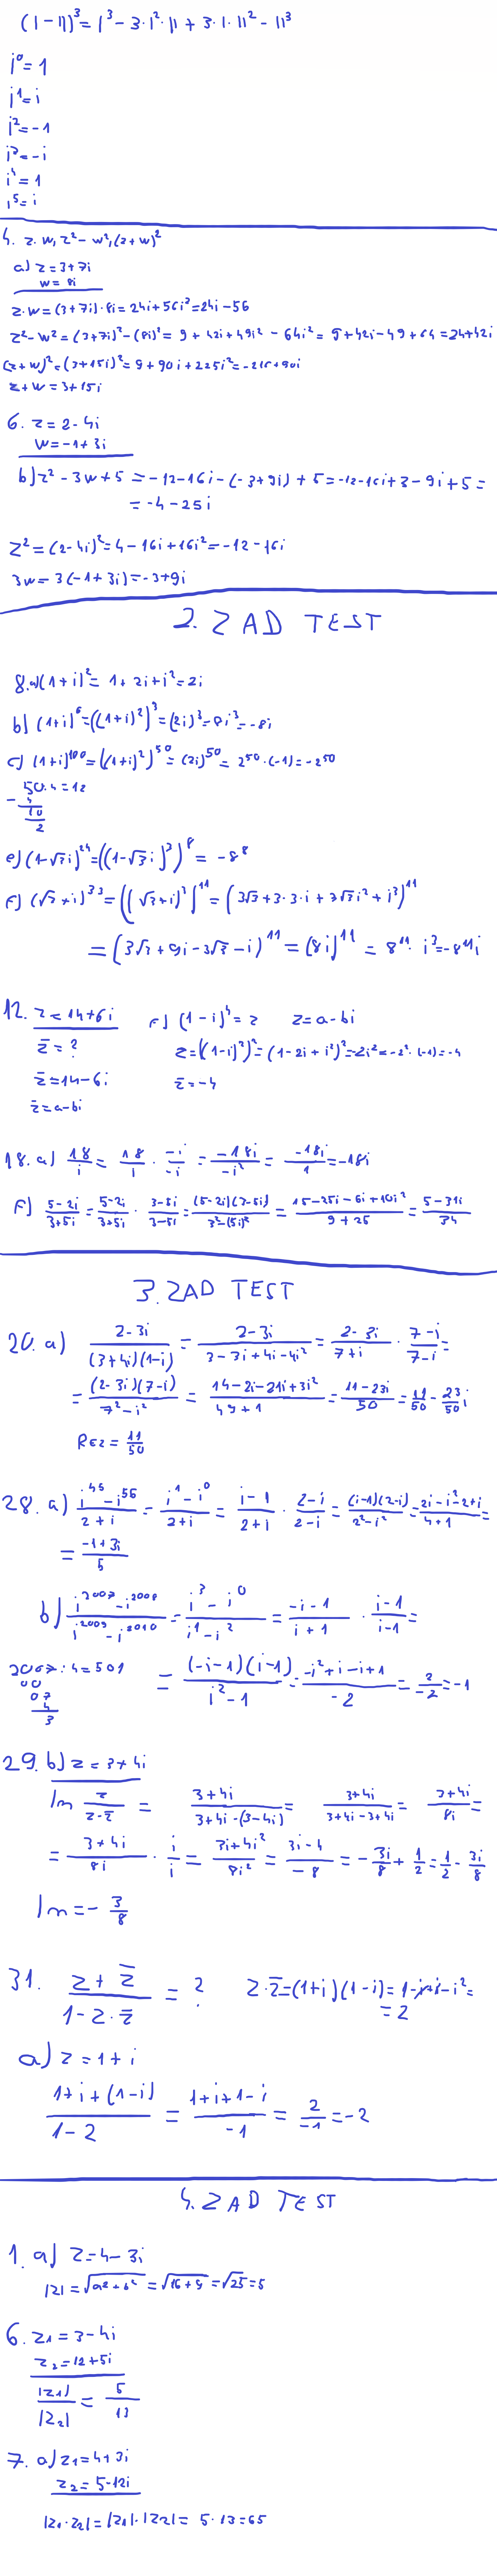 (I - II)³ = I³ - 3·I²·II + 3·I·II² - II³
i⁰ = 1
i¹ = i
i² = -1
i³ = -i
i⁴ = 1
i⁵ = i
4. z·w, z² - w², (z + w)²
a) z = 3 + 7i
w = 8i
z·w = (3 + 7i)·8i = 24i + 56i² = 24i - 56
z² - w² = (3 + 7i)² - (8i)² = 9 + 42i + 49i² - 64i² = 9 + 42i - 49 + 64 = 24 + 42i
(z + w)² = (3 + 15i)² = 9 + 90i + 225i² = -216 + 90i
z + w = 3 + 15i
6. z = 2 - 4i
w = -1 + 3i
b) z² - 3w + 5 = -12 - 16i - (-3 + 9i) + 5 = -12 - 16i + 3 - 9i + 5 =
= -4 - 25i
z² = (2 - 4i)² = 4 - 16i + 16i² = -12 - 16i
3w = 3(-1 + 3i) = -3 + 9i
2. ZAD TEST
8. a) (1 + i)² = 1 + 2i + i² = 2i
b) (1 + i)⁶ = ((1 + i)²)³ = (2i)³ = 8i³ = -8i
c) (1 + i)¹⁰⁰ = ((1 + i)²)⁵⁰ = (2i)⁵⁰ = 2⁵⁰·(-1) = -2⁵⁰
50:4 = 12
- 4
10
2
e) (1 - √3i)²⁴ = ((1 - √3i)³)⁸ = -8⁸
f) (√3 + i)³³ = ((√3 + i)³)¹¹ = (3√3 + 3·3·i + 3√3i² + i³)¹¹
= (3√3 + 9i - 3√3 - i)¹¹ = (8i)¹¹ = 8¹¹·i³ = -8¹¹i
12. z = 14 + 6i f) (1 - i)⁴ = z z = a - bi
z̄ = ? z = ((1 - i)²)² = (1 - 2i + i²)² = -2i² = -2²·(-1) = -4
z̄ = 14 - 6i z̄ = -4
z̄ = a - bi
18. a) 18/i = 18/i · -i/-i = -18i/-i² = -18i/1 = -18i
f) 5-2i/3+5i = 5-2i/3+5i · 3-5i/3-5i = (5-2i)(3-5i)/3²-(5i)² = 15-25i-6i+10i²/9+25 = 5-31i/34
3. ZAD TEST
20. a) 2-3i/(3+4i)(1-i) = 2-3i/3-3i+4i-4i² = 2-3i/7+i · 7-i/7-i =
= (2-3i)(7-i)/7²-i² = 14-2i-21i+3i²/49+1 = 11-23i/50 = 11/50 - 23/50 i
Rez = 11/50
28. a) i⁴⁵-i⁵⁶/2+i = i¹-i⁰/2+i = i-1/2+i · 2-i/2-i = (i-1)(2-i)/2²-i² = 2i-i²-2+i/4+1 =
= -1+3i/5
b) i²⁰⁰⁷-i²⁰⁰⁸/i²⁰⁰⁹-i²⁰¹⁰ = i³-i⁰/i¹-i² = -i-1/i+1 · i-1/i-1 =
2007:4 = 501 = (-i-1)(i-1)/i²-1 = -i²+i-i+1/-2 = 2/-2 = -1
00
07
4
3
29. b) z = 3 + 4i
Im z/z-z̄ = 3+4i/3+4i-(3-4i) = 3+4i/3+4i-3+4i = 3+4i/8i =
= 3+4i/8i · i/i = 3i+4i²/8i² = 3i-4/-8 = -3i/8 + 1/2 = 1/2 - 3i/8
Im = -3/8
31. z+z̄/1-z·z̄ = ? z·z̄ = (1+i)(1-i) = 1-i+i-i² =
= 2
a) z = 1 + i
1+i+(1-i)/1-2 = 1+i+1-i/-1 = 2/-1 = -2
4. ZAD TEST
1. a) z = 4 - 3i
|z| = √a²+b² = √16+9 = √25 = 5
6. z₁ = 3 - 4i
z₂ = 12 + 5i
|z₁|/|z₂| = 5/13
7. a) z₁ = 4 + 3i
z₂ = 5 - 12i
|z₁·z₂| = |z₁|·|z₂| = 5·13 = 65